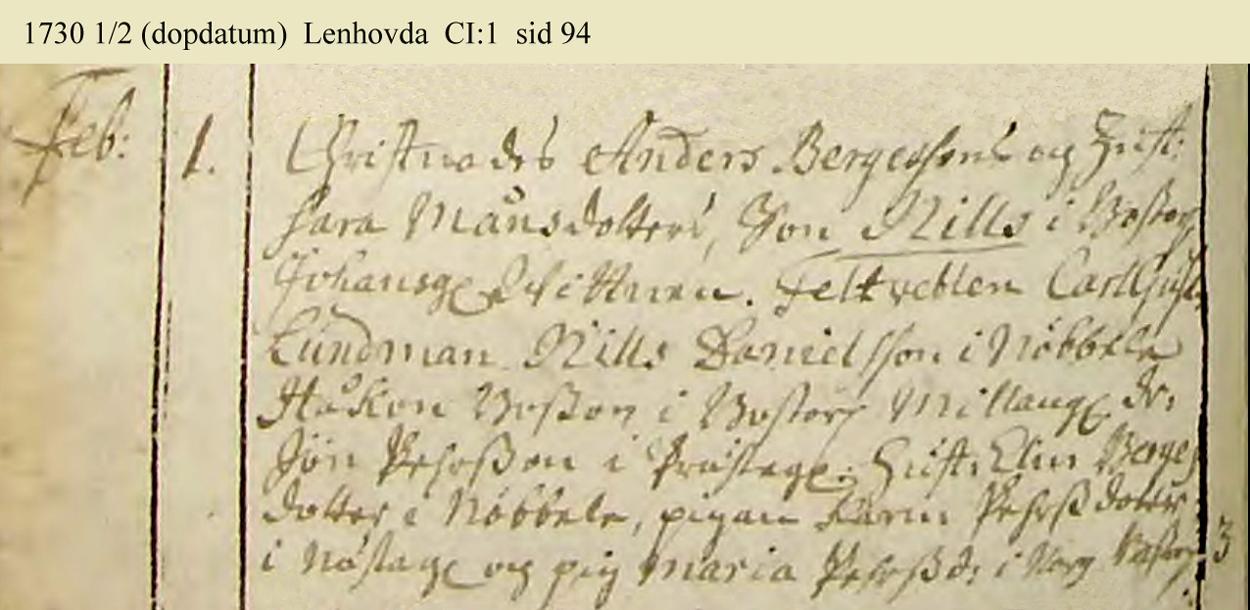 1730 1/2 (dopdatum) Lenhovda CI:1 sid 94
Feb: 1. Christnades Anders Bergessons og Hust:
Sara Månsdotters, Son Nills i Boßtorp
Johansg Wittnen. Feltweblen Carl Gust.
Lundman Nills Danielsson i Nöbbele
Håkon Boßon i Bostorp Millang dr,
Jön Pehrßon i Prästag. Hust. Elin Berges
dotter i Nöbbele, pigan Karin Pehrß dotter
i Nöstag og pig Maria Pehrß dr i Norg
3